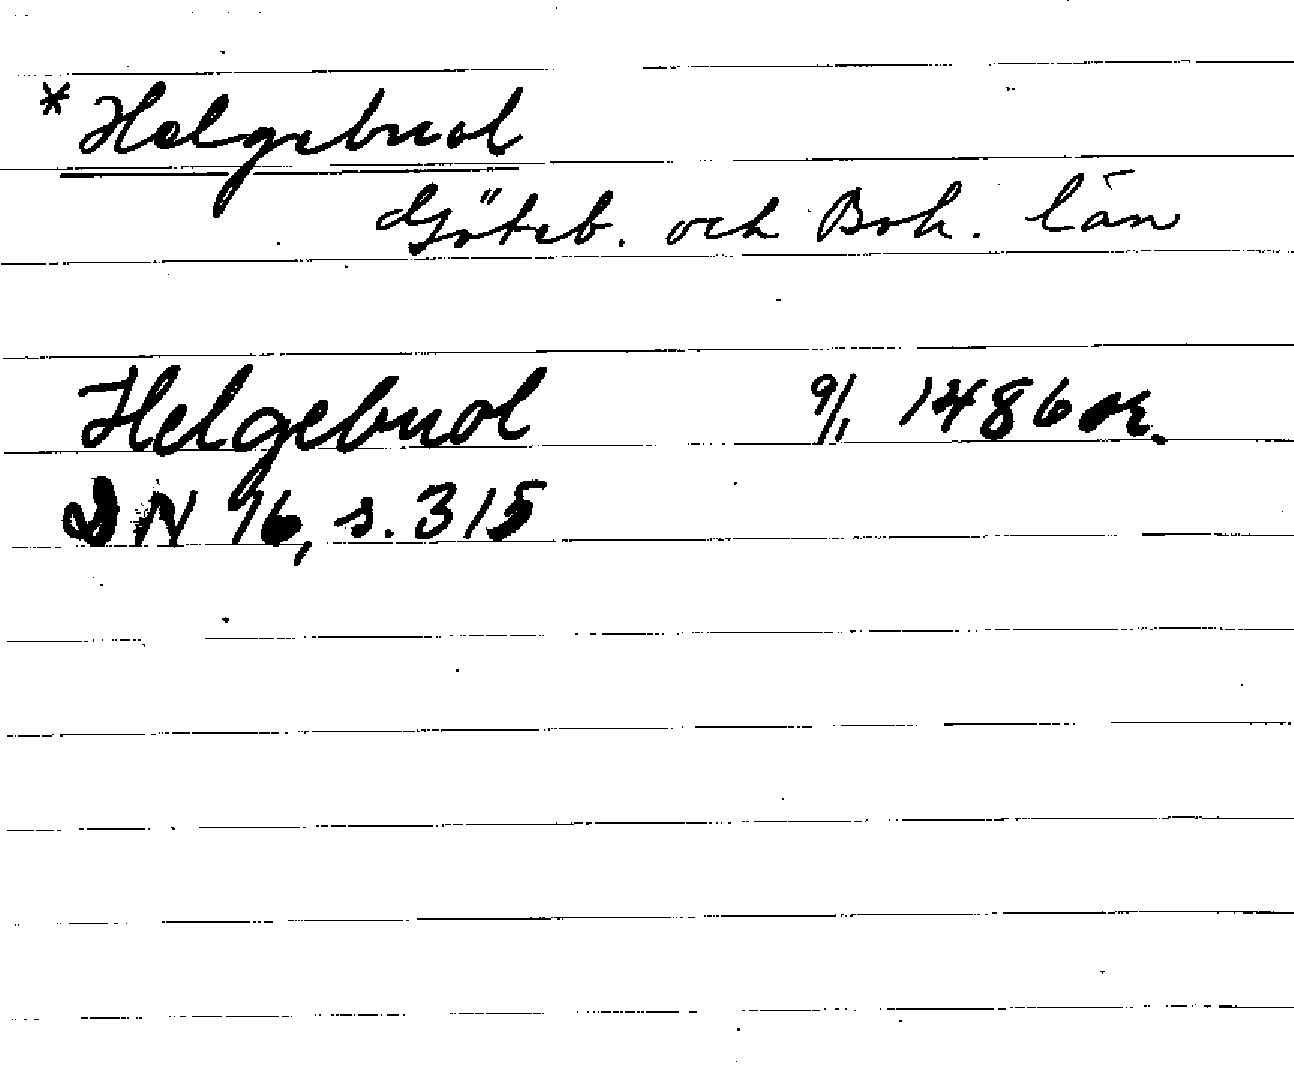 * Helgebuol
Göteb. och Boh. län
Helgebuol 9/1 1486 or.
DN 16, s. 315